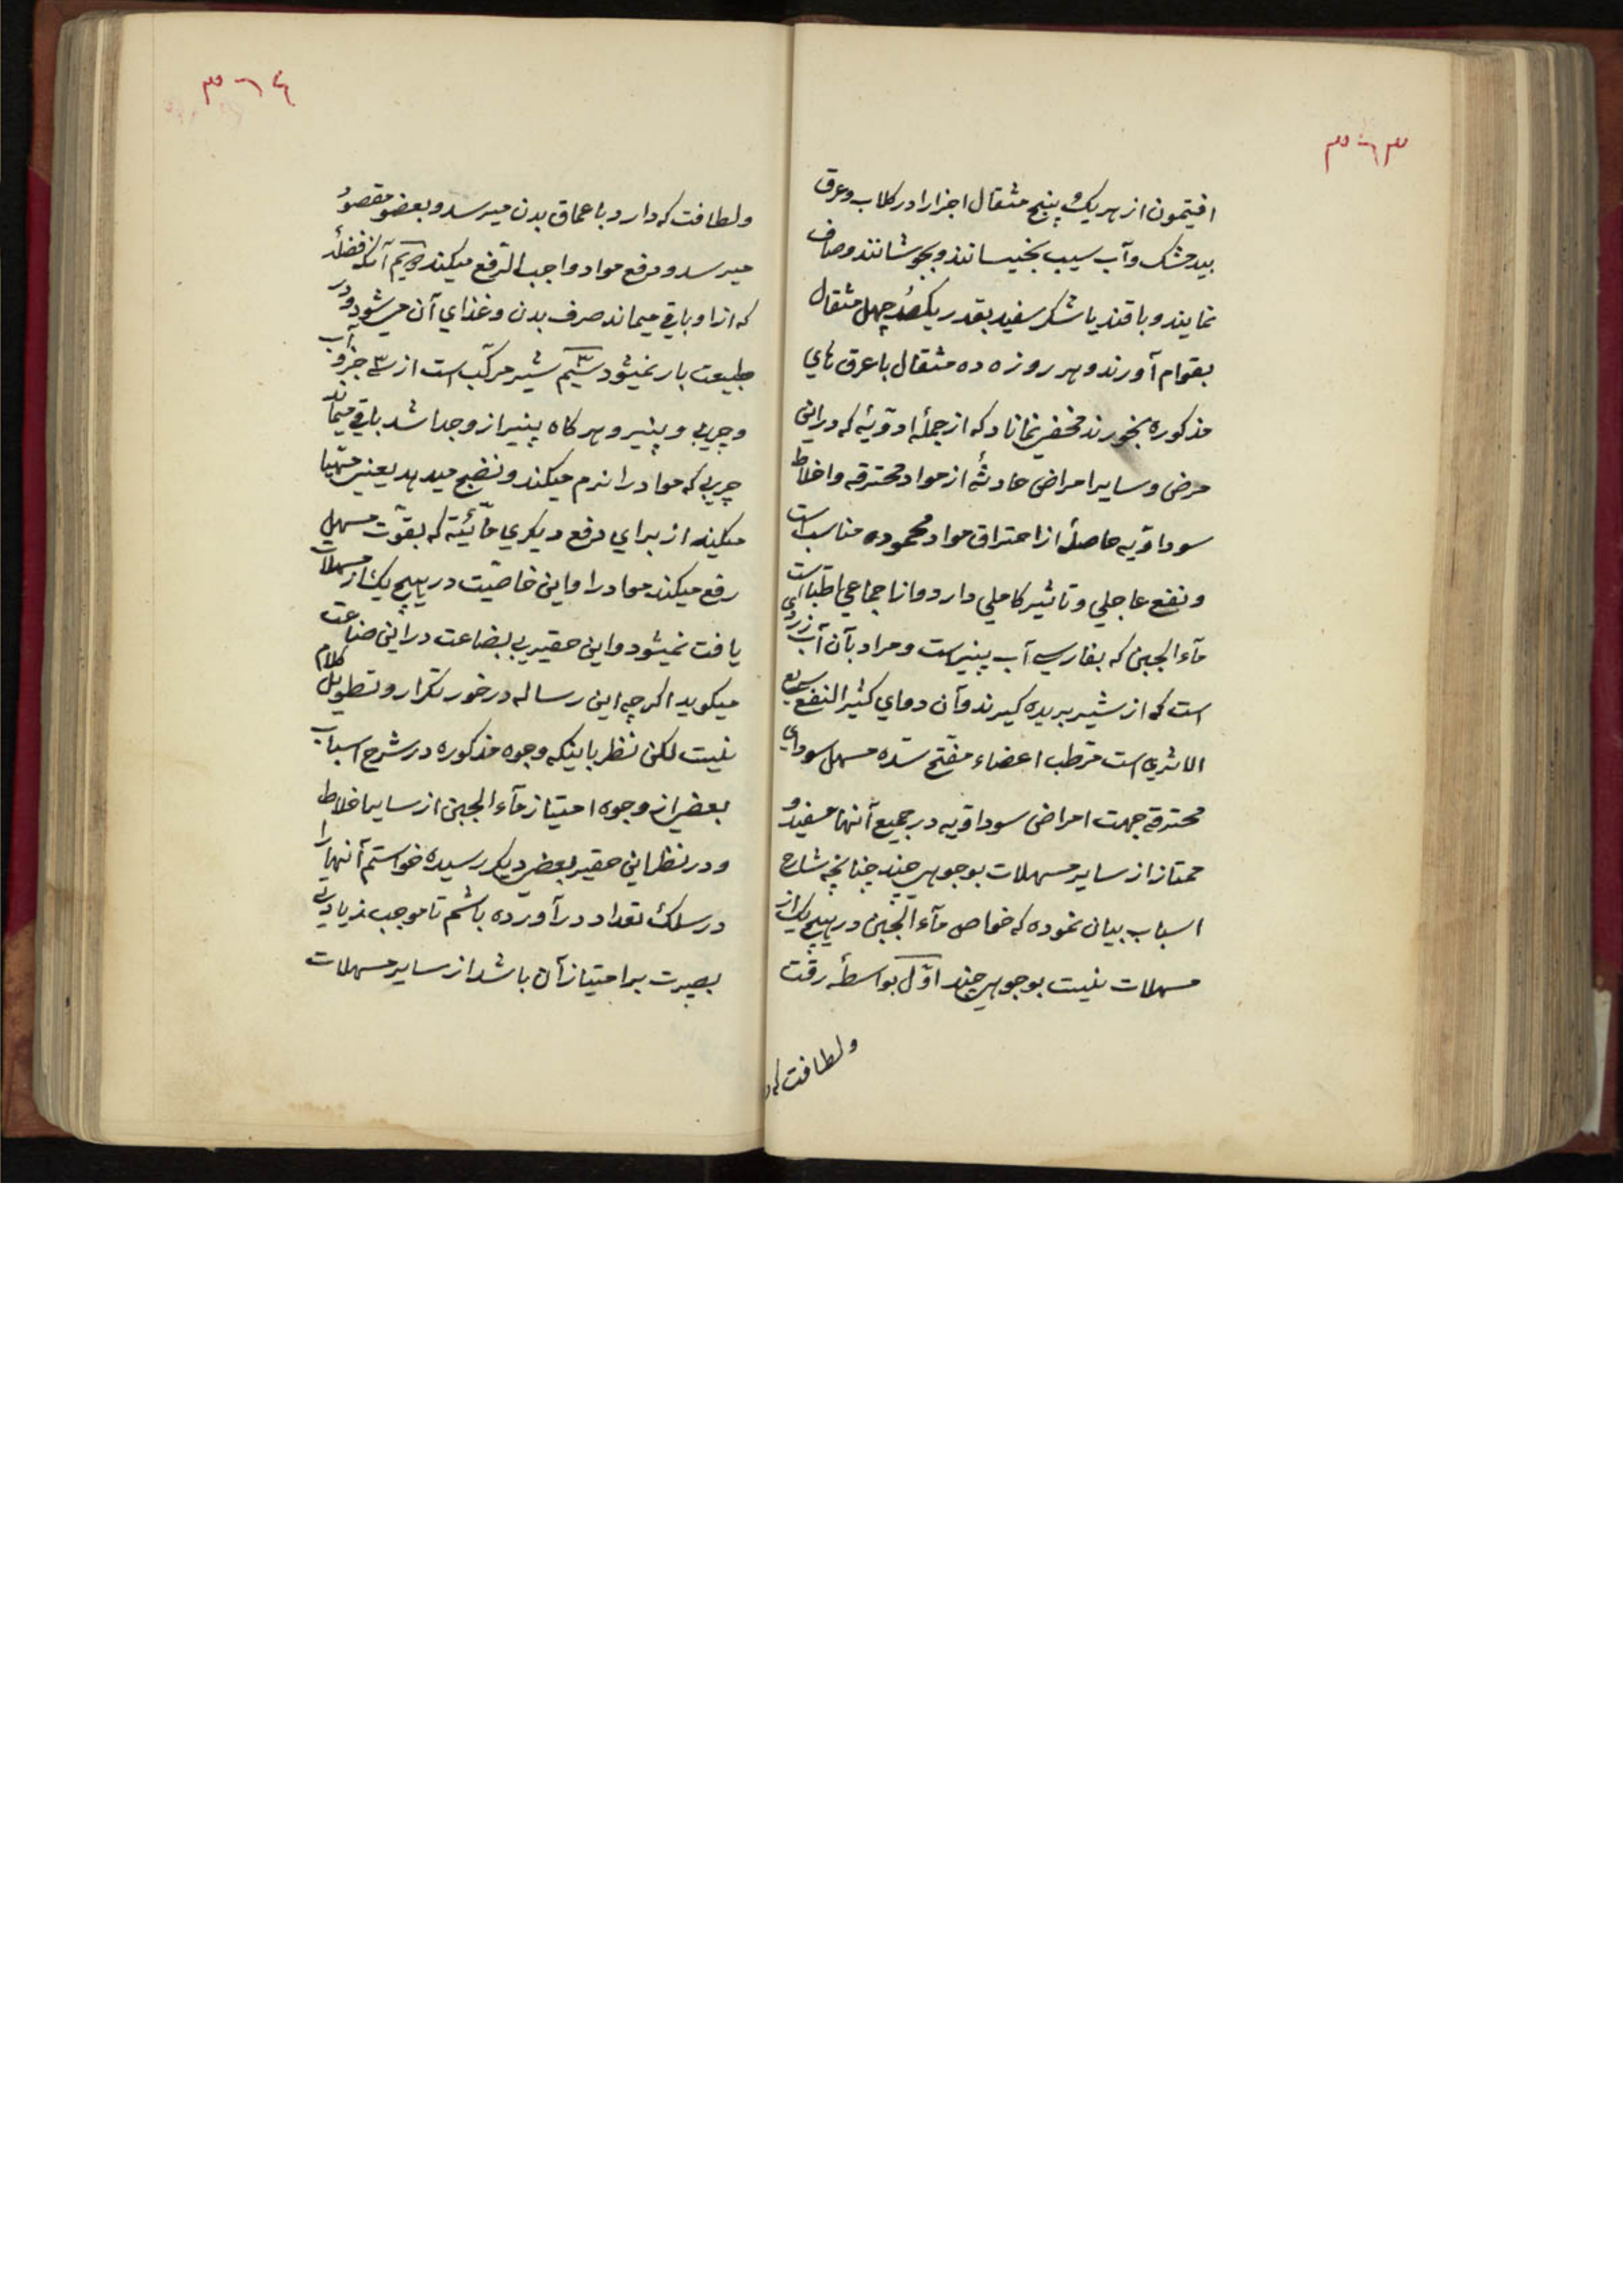 ۳۶۳
افتیمون از هر یک پنج مثقال اجزا را در کلاب وعرق
بیدمشک وآب سیب بخیسانند وبجوشانند وصاف
نمایند وبا قند یا شکر سفید بقدر یکصد چهل مثقال
بقوام آورند وهر روزه ده مثقال با عرق های
مذکوره بخورند مخفی نماناد که از جملهٔ ادویهٔ که در این
مرض وسایر امراض حادثهٔ از مواد محترقه واخلاط
سوداویه حاصلهٔ از احتراق مواد محموده مناسب است
ونفع عاجلی وتاثیر کاملی دارد واز اجماعی اطبا است
مآء الجبن که بفارسی آب پنیر است ومراد بآن آب زردی
است که از شیر بریده کیرند وآن دوای کثیر النفع سریع
الاثری است مرطب اعضاء مفتح سده مسهل سودای
محترقه جهت امراض سوداویه در جمیع آنها مفید و
ممتاز از سایر مسهلات بوجوهی چند چنانچه شارح
اسباب بیان نموده که خواص مآء الجبن در هیچ یک از
مسهلات نیست بوجوهی چند اوّل بواسطهٔ رقت
ولطافت که
۳۶۴
ولطافت که دارد با عماق بدن میرسد وبعضو مقصود
میرسد ودفع مواد واجب الدفع میکند دویم آنکه فضلهٔ
که از او باقی میماند صرف بدن وغذای آن میشود ودر
طبیعت بار نمیشود سیّم شیر مرکّب است از سه جزو آب
وچربی وپنیر وهر کاه پنیر از و جدا شد باقی میماند
چربی که مواد را نرم میکند ونضج میدهد یعنی مهیّا
میکند از برای دفع دیکری مآئیّته که بقوّت مسهل
رفع میکند مواد را واین خاصیّت در هیچ یک از مسهلات
یافت نمیشود واین حقیر بی بضاعت در این صناعت
میکوید اکر چه این رساله در خور تکرار وتطویل کلام
نیست لکن نظر باینکه وجوه مذکوره در شرح اسباب
بعضی از وجوه امتیاز مآء الجبن از سایر اخلاط
ودر نظر این حقیر بعضی دیکر رسیده خواستم آنها را
در سلک تعداد در آورده باشم تا موجب زیادتی
بصیرت بر امتیاز آن باشد از سایر مسهلات